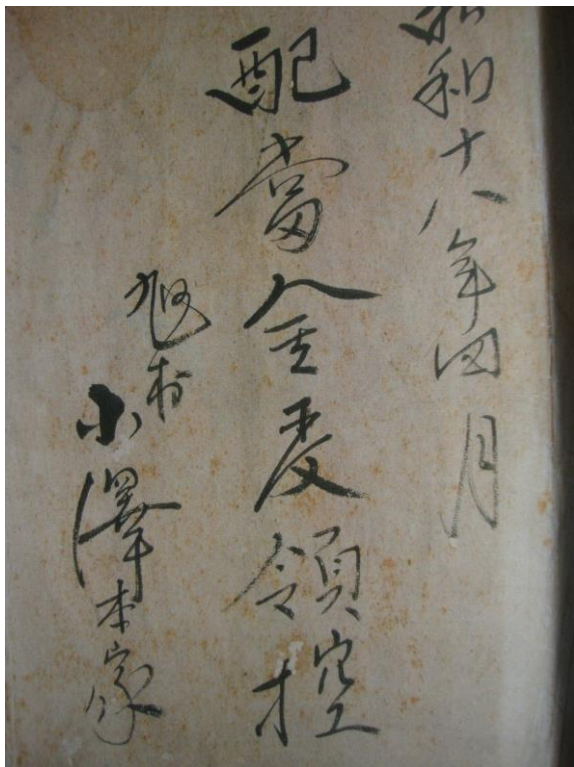 昭和十八年四月
配當金受領控
旭村
小澤本家